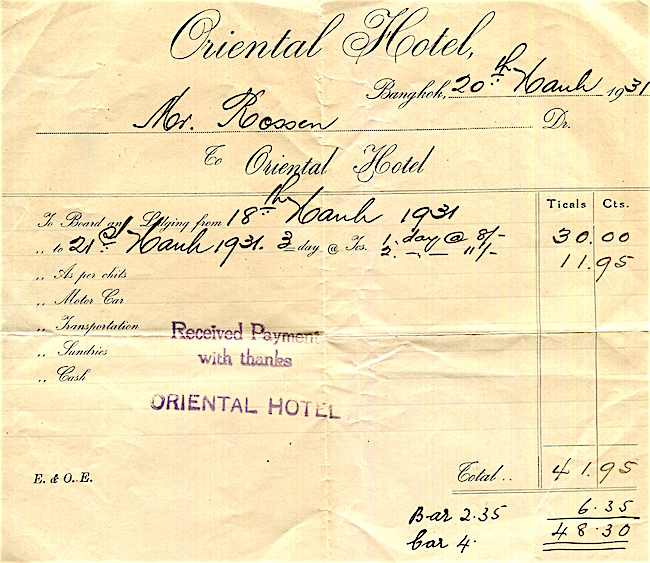 Oriental Hotel,
Bangkok, 20th March 1931
Mr. Rossen Dr.
To Oriental Hotel
Ticals Cts.
To Board and Lodging from 18th March 1931
,, to 21st March 1931. 3 day @ Tcs. 1. day @ 8/- 30.00
2. " — 11/-
,, As per chits 11.95
,, Motor Car
,, Transportation
,, Sundries
,, Cash
Received Payment
with thanks
ORIENTAL HOTEL
E. & O. E. Total .. 41.95
Bar 2.35 6.35
Car 4. 48.30